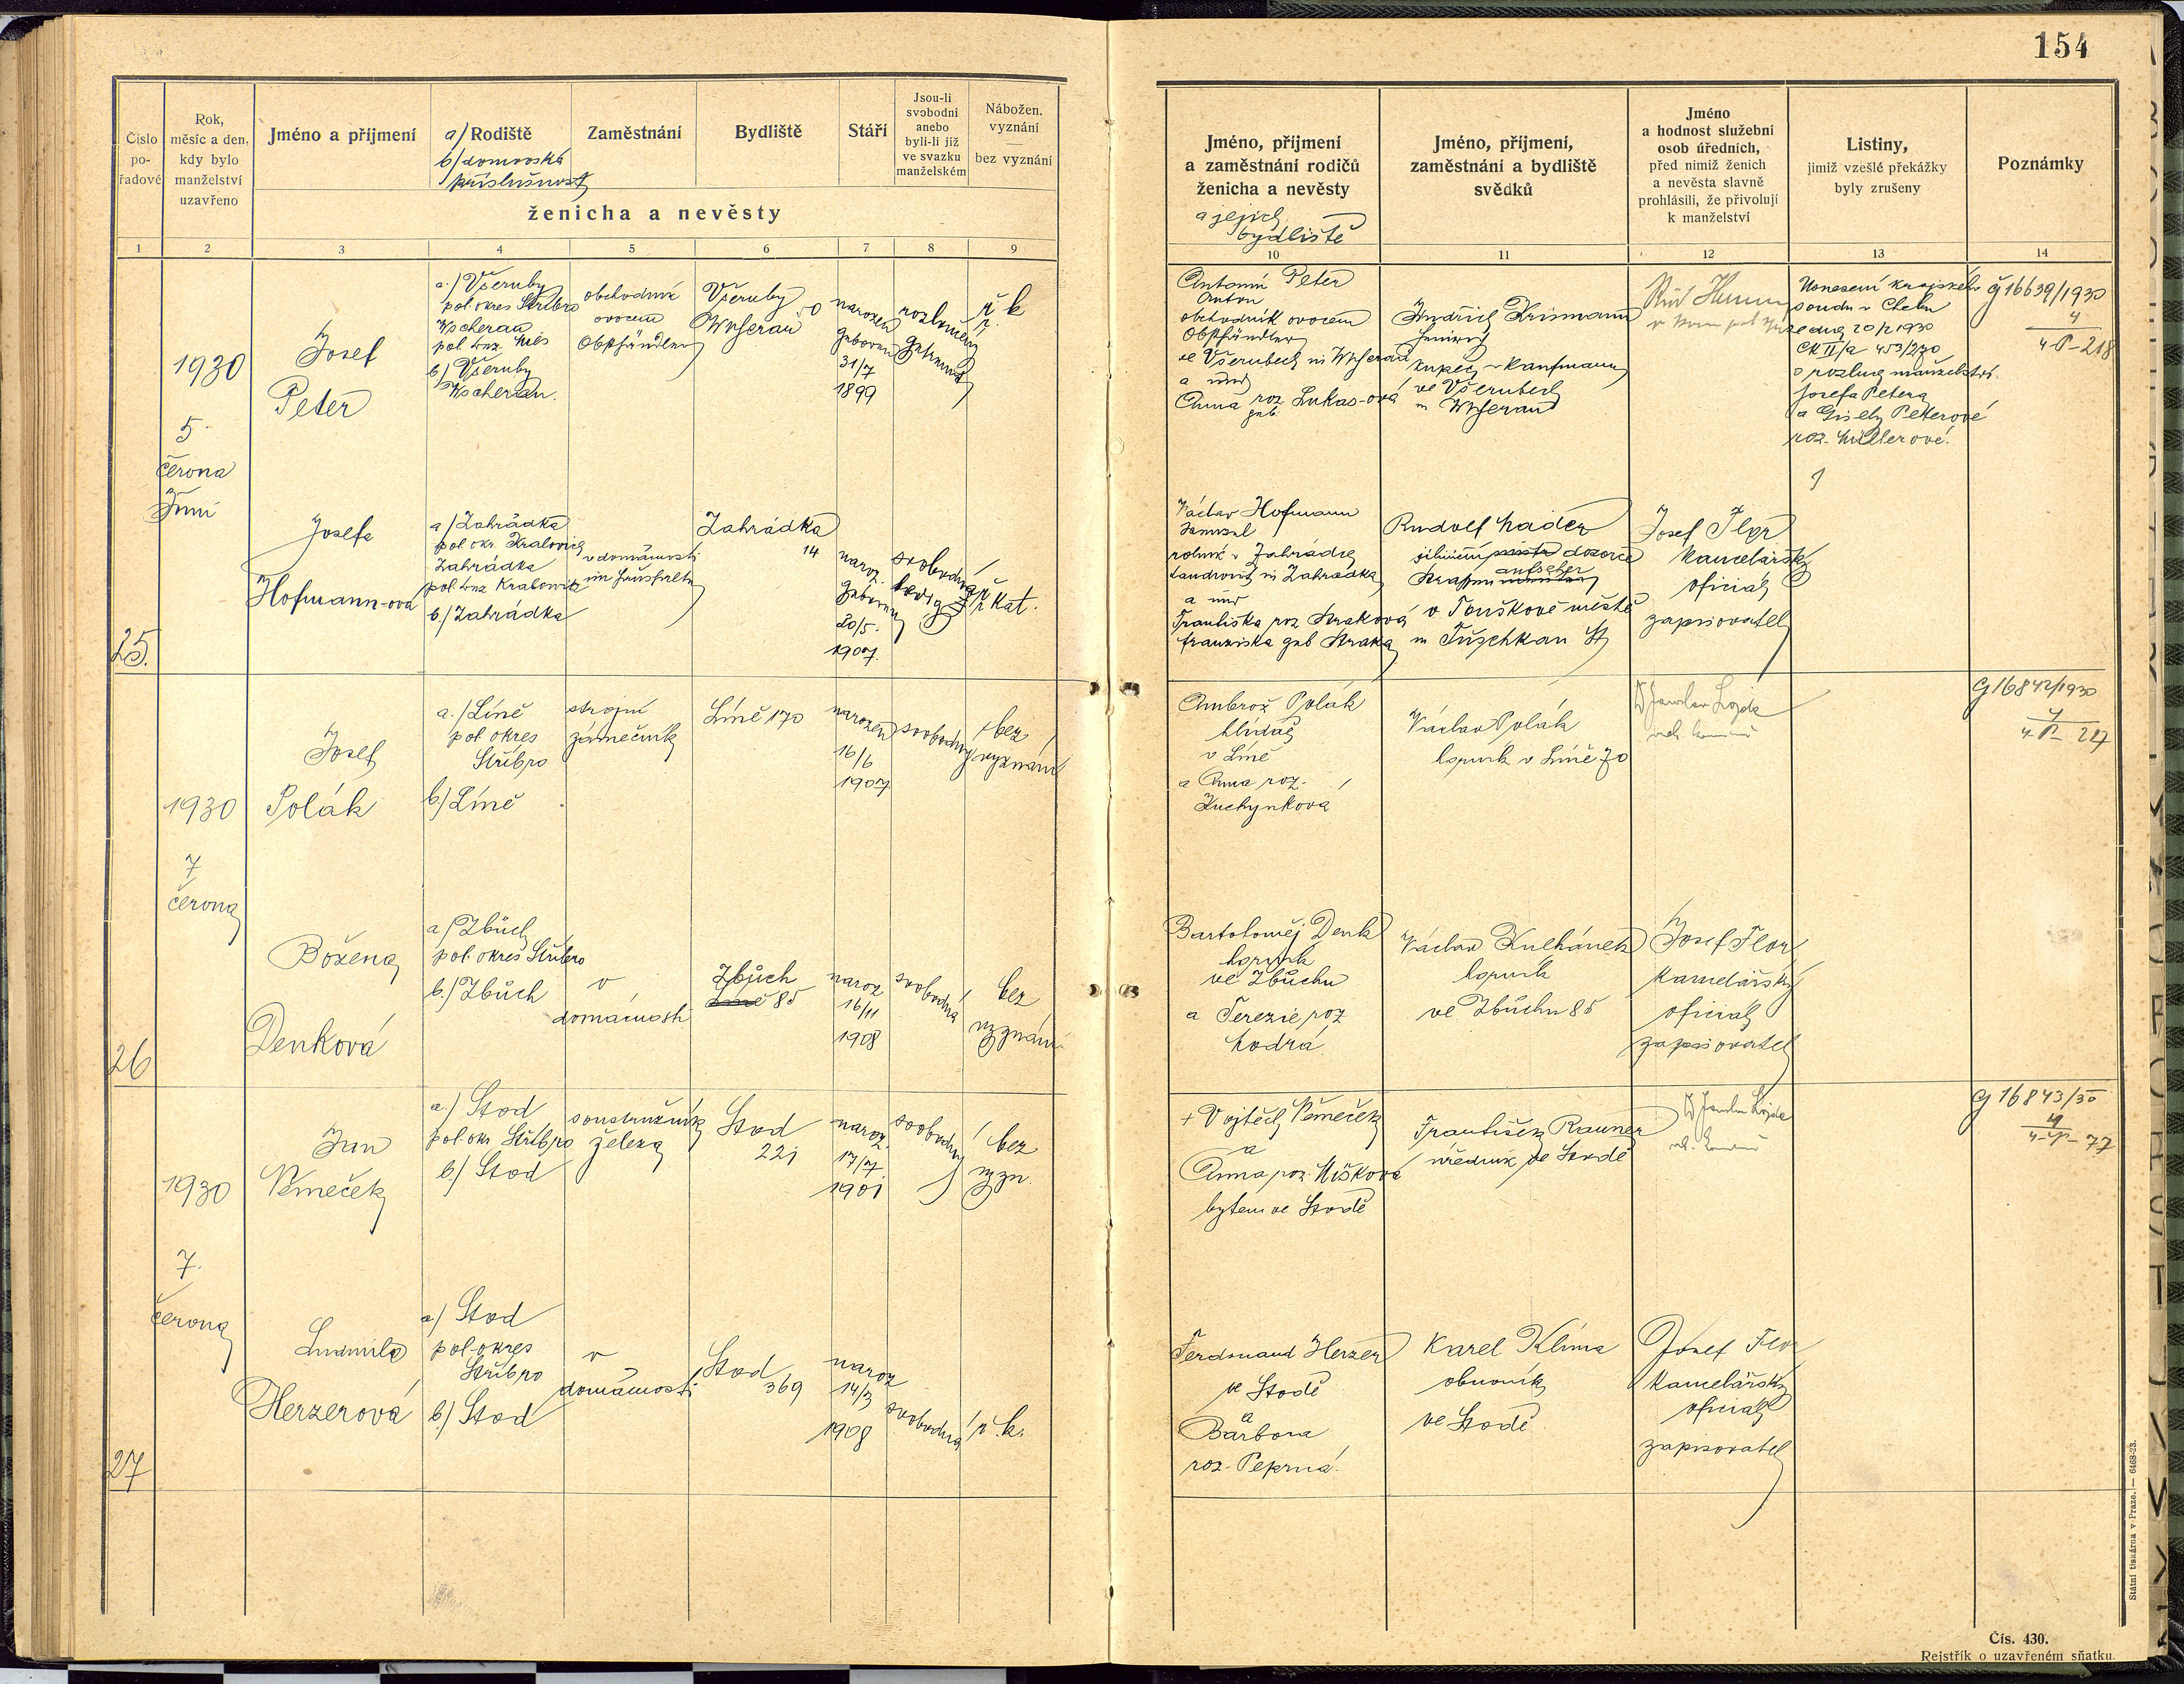 154
Číslo pořadové
Rok, měsíc a den, kdy bylo manželství uzavřeno
Jméno a příjmení
a/ Rodiště
b/ domovská příslušnost
Zaměstnání
Bydliště
Stáří
Jsou-li svobodni anebo byli-li již ve svazku manželském
Nábožen. vyznání — bez vyznání
ženicha a nevěsty
Jméno, příjmení a zaměstnání rodičů ženicha a nevěsty
a jejich bydliště
Jméno, příjmení, zaměstnání a bydliště svědků
Jméno a hodnost služební osob úředních, před nimiž ženich a nevěsta slavně prohlásili, že přivolují k manželství
Listiny, jimiž vzešlé překážky byly zrušeny
Poznámky
1 2 3 4 5 6 7 8 9 10 11 12 13 14
25.
1930
5.
června
Juni
Josef
Peter
a./ Všeruby
pol. okres Stříbro
Wscherau
pol. Bez. Mies
b/ Všeruby
Wscherau.
obchodník
ovocem
Obsthändler
Všeruby
Wscherau
narozen
geboren
31/7
1899
rozloučený
getrennt
ř. k.
Antonín Peter
Anton
obchodník ovocem
Obsthändler
ve Všerubech in Wscherau
a und
Anna roz. Lukas-ová
geb.
Jindřich Krismann
Heinrich
kupec - Kaufmann
ve Všerubech
in Wscherau
Usnesení krajského
soudu v Chebu
ze dne 20/2 1930
Ck II/a 453/2/30
o rozluce manželství
Josefa Petera
a Gisely Peterové
roz. Müllerové.
G 16639/1930
4
4-P-218
Josefa
Hofmann-ová
a/ Zahrádka
pol. okr. Kralovice
Zahrádka
pol. Bez Kralowitz
b./ Zahrádka
v domácnosti
im Haushalte
Zahrádka
14
naroz.
geboren
20/5.
1907.
svobodná
ledig
ř. kat.
Václav Hofmann
Wenzel
rolník v Zahrádce
Landwirt in Zahradka
a und
Františka roz Straková
Franziska geb Straka
Rudolf Mader
silniční mistr dozorce
Strassenmeister aufseher
v Touškově městě
in Tuschkau St
Josef Flor
kancelářský
oficiál
zapisovatel
26
1930
7
června
Josef
Polák
a./ Líně
pol. okres
Stříbro
b/ Líně
strojní
zámečník
Líně 170
narozen
16/6
1907
svobodný
bez
vyznání
Ambrož Polák
hlídač
v Líně
a Anna roz.
Kuchynková
Václav Polák
horník v Líně 70
Dr Jaroslav Lojda
G 16842/1930
4
4 P- 227
Božena
Denková
a/ Zbůch
pol. okres Stříbro
b./ Zbůch
v
domácnosti
Zbůch
Líně 85
naroz
16/11
1908
svobodná
bez
vyznání
Bartoloměj Denk
horník
ve Zbůchu
a Terezie roz
Modrá
Václav Kulhánek
horník
ve Zbůchu 85
Josef Flor
kancelářský
oficiál
zapisovatel
27
1930
7.
června
Jan
Němeček
a./ Stod
pol. okr Stříbro
b./ Stod
soustružník
železa
Stod
221
naroz.
17/7.
1901
svobodný
bez
vyzn.
+ Vojtěch Němeček
a
Anna roz. Mišková
bytem ve Stodě
František Rauner
úředník ve Stodě
Dr Jaroslav Lojda
G 16843/30
4
4-P-77
Ludmila
Herzerová
a/ Stod
pol. okres
Stříbro
b/ Stod
v
domácnosti
Stod
369
naroz
14/3
1908
svobodná
ř. k.
Ferdinand Herzer
ve Stodě
a
Barbora
roz. Peprná.
Karel Klíma
obuvník
ve Stodě
Josef Flor
kancelářský
oficiál
zapisovatel
Státní tiskárna v Praze. — 6468-23.
Čís. 430.
Rejstřík o uzavřeném sňatku.